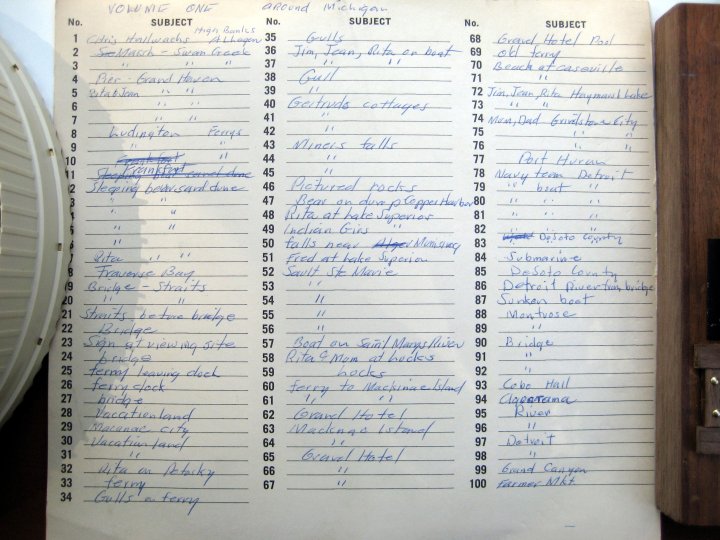 VOLUME ONE around Michigan
No. SUBJECT No. SUBJECT No. SUBJECT
High Banks
1 Allegan
2 Marsh - Swan Creek
3 " "
4 Pier - Grand Haven
5 Rita & Jean " "
6 " "
7 " "
8 Ludington Ferrys
9 " "
10 Frankfort "
11 Sleeping bear sand dune
12 Sleeping bear sand dune
" "
" "
" "
" "
Rita " "
Traverse Bay
19 Bridge - Straits
20 " "
21 Straits before bridge
22 Bridge
23 Sign at viewing site
24 bridge
25 ferry leaving dock
26 ferry dock
27 bridge
28 Vacationland
29 Macanac city
30 Vacation land
31 " "
32 Rita on Petosky
33 ferry
34 Gulls on ferry
35 Gulls
36 Jim, Jean, Rita on boat
37 " "
38 Gull
39 "
40 Gertrude cottages
41 " "
42 " "
43 Miners falls
44 "
45 "
46 Pictured rocks
47 Bear on dump Copper Harbor
48 Rita at Lake Superior
49 Indian Girs "
50 falls near Munising
51 Fred at Lake Superior
52 Sault Ste Marie
53 "
54 "
55 "
56 "
57 Boat on Saint Marys River
58 Rita & Mum at locks
59 locks
60 ferry to Mackinac Island
61 " "
62 Grand Hotel
63 Macknac Island
64 "
65 Grand Hotel
66 "
67 "
68 Grand Hotel Pool
69 old ferry
70 Beach at caseville
71 "
72 Jim, Jean, Rita Haymarsh Lake
73 " "
74 Mum, Dad Grindstone City
75 " "
76 "
77 Port Huron
78 Navy team Detroit
79 " boat "
80 " "
81 " "
82 " "
83 DeSoto County
84 Submarine
85 DeSoto County
86 Detroit River from bridge
87 Sunken boat
88 Montrose
89 "
90 Bridge
91 "
92 "
93 Cobo Hall
94
95 River
96 "
97 Detroit
98 "
99 Grand Canyon
100 Farmer Mkt.